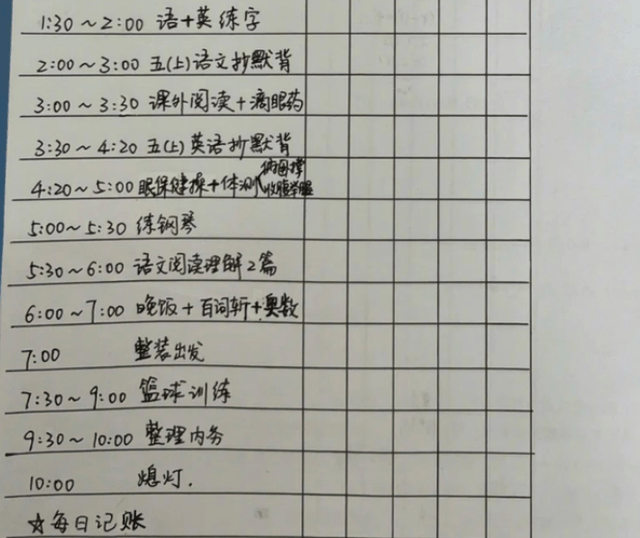 1:30～2:00 语+英练字
2:00～3:00 五(上)语文抄默背
3:00～3:30 课外阅读+滴眼药
3:30～4:20 五(上)英语抄默背
4:20～5:00 眼保健操+体测(俯卧撑 收腹举腿
5:00～5:30 练钢琴
5:30～6:00 语文阅读理解2篇
6:00～7:00 晚饭+百词斩+奥数
7:00 整装出发
7:30～9:00 篮球训练
9:30～10:00 整理内务
10:00 熄灯.
☆每日记账